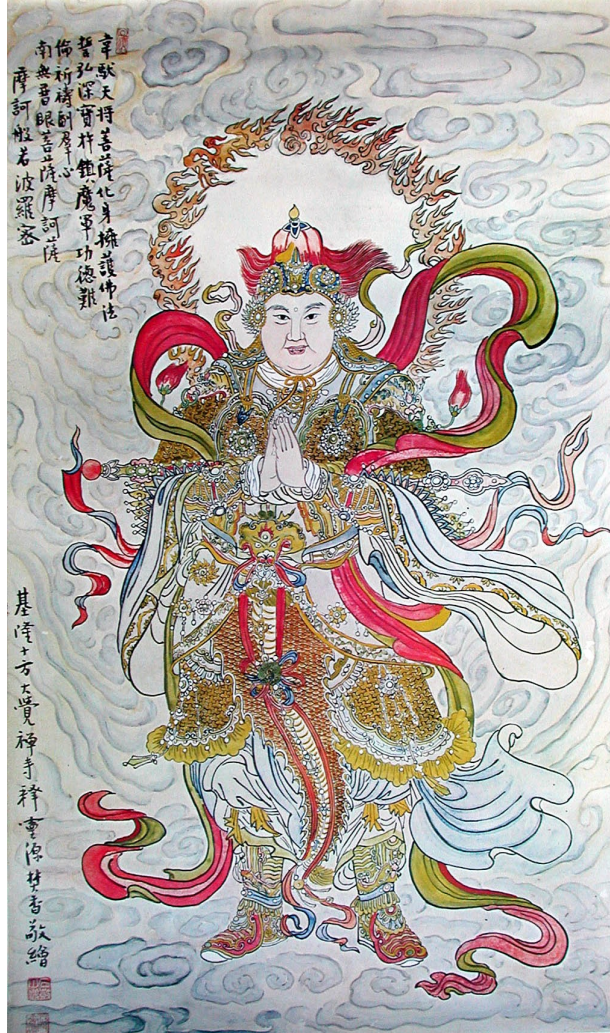 韋馱天将菩薩化身擁護佛法
誓弘深寶杵鎮魔軍功德難
倫祈禱副羣心
南無普眼菩薩摩訶薩
摩訶般若波羅蜜
基隆十方大覺禪寺釋重源焚香敬繪